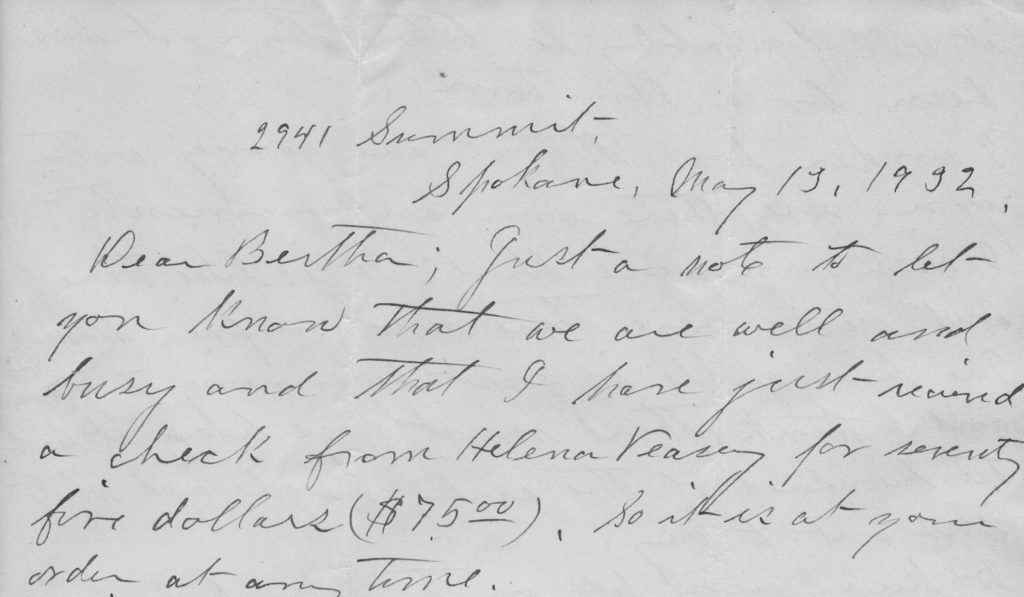 2941 Summit.
Spokane, May 13, 1932.
Dear Bertha; Just a note to let
you know that we are well and
busy and that I have just recieved
a check from Helena Veasey for seventy
five dollars ($75.00). So it is at your
order at any time.